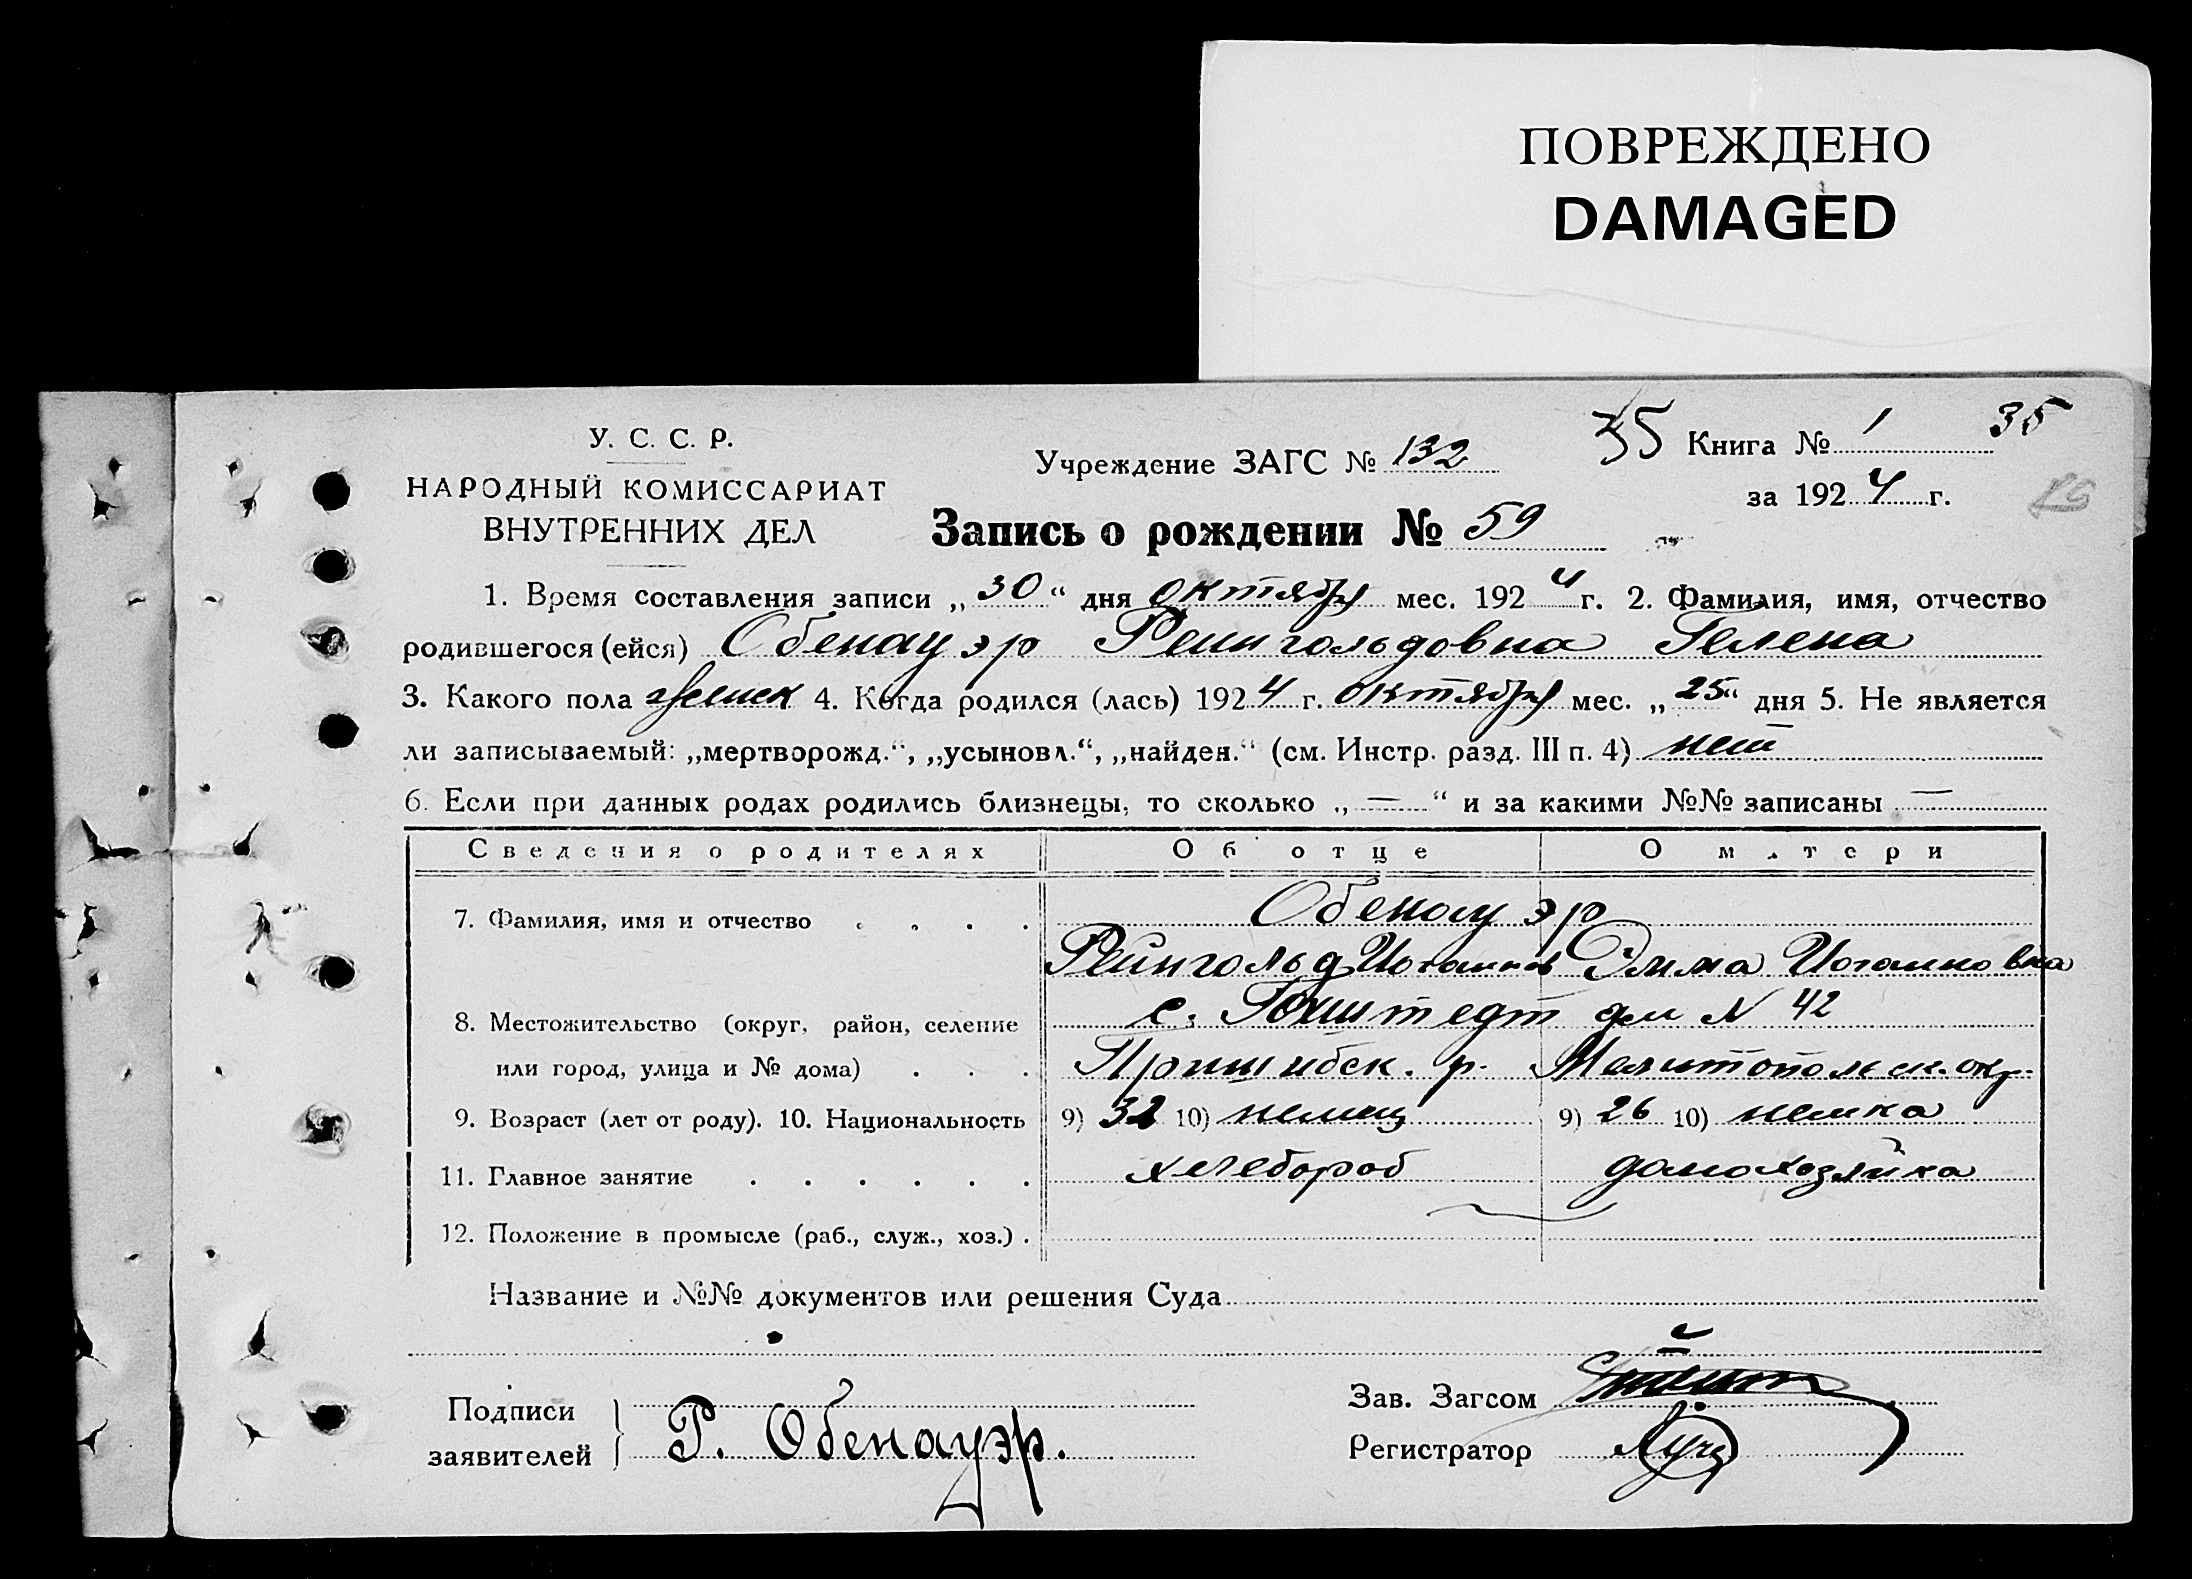 ПОВРЕЖДЕНО
DAMAGED
У. С. С. Р.
НАРОДНЫЙ КОМИССАРИАТ
ВНУТРЕННИХ ДЕЛ
Учреждение ЗАГС № 132
35 Книга № 1 35
за 1924 г.
Запись о рождении № 59
1. Время составления записи „30“ дня октября мес. 1924 г. 2. Фамилия, имя, отчество
родившегося (ейся) Обенауэр Рейнгольдовна Гелена
3. Какого пола женск 4. Когда родился (лась) 1924 г. октября мес. „25“ дня 5. Не является
ли записываемый: „мертворожд.“, „усыновл.“, „найден.“ (см. Инстр. разд. III п. 4) нет
6. Если при данных родах родились близнецы, то сколько „—“ и за какими №№ записаны —
Сведения о родителях Об отце О матери
7. Фамилия, имя и отчество . . . . Обенауэр
Рейнгольд Иоганнов Эмма Иоганновна
8. Местожительство (округ, район, селение с. дм N 42
или город, улица и № дома) . . . Пришибск. р. Мелитопольск. окр.
9. Возраст (лет от роду). 10. Национальность 9) 32 10) немец 9) 26 10) немка
11. Главное занятие . . . . . . хлебороб домохозяйка
12. Положение в промысле (раб., служ., хоз.) .
Название и №№ документов или решения Суда
Подписи
заявителей } Р. Обенауэр.
Зав. Загсом
Регистратор